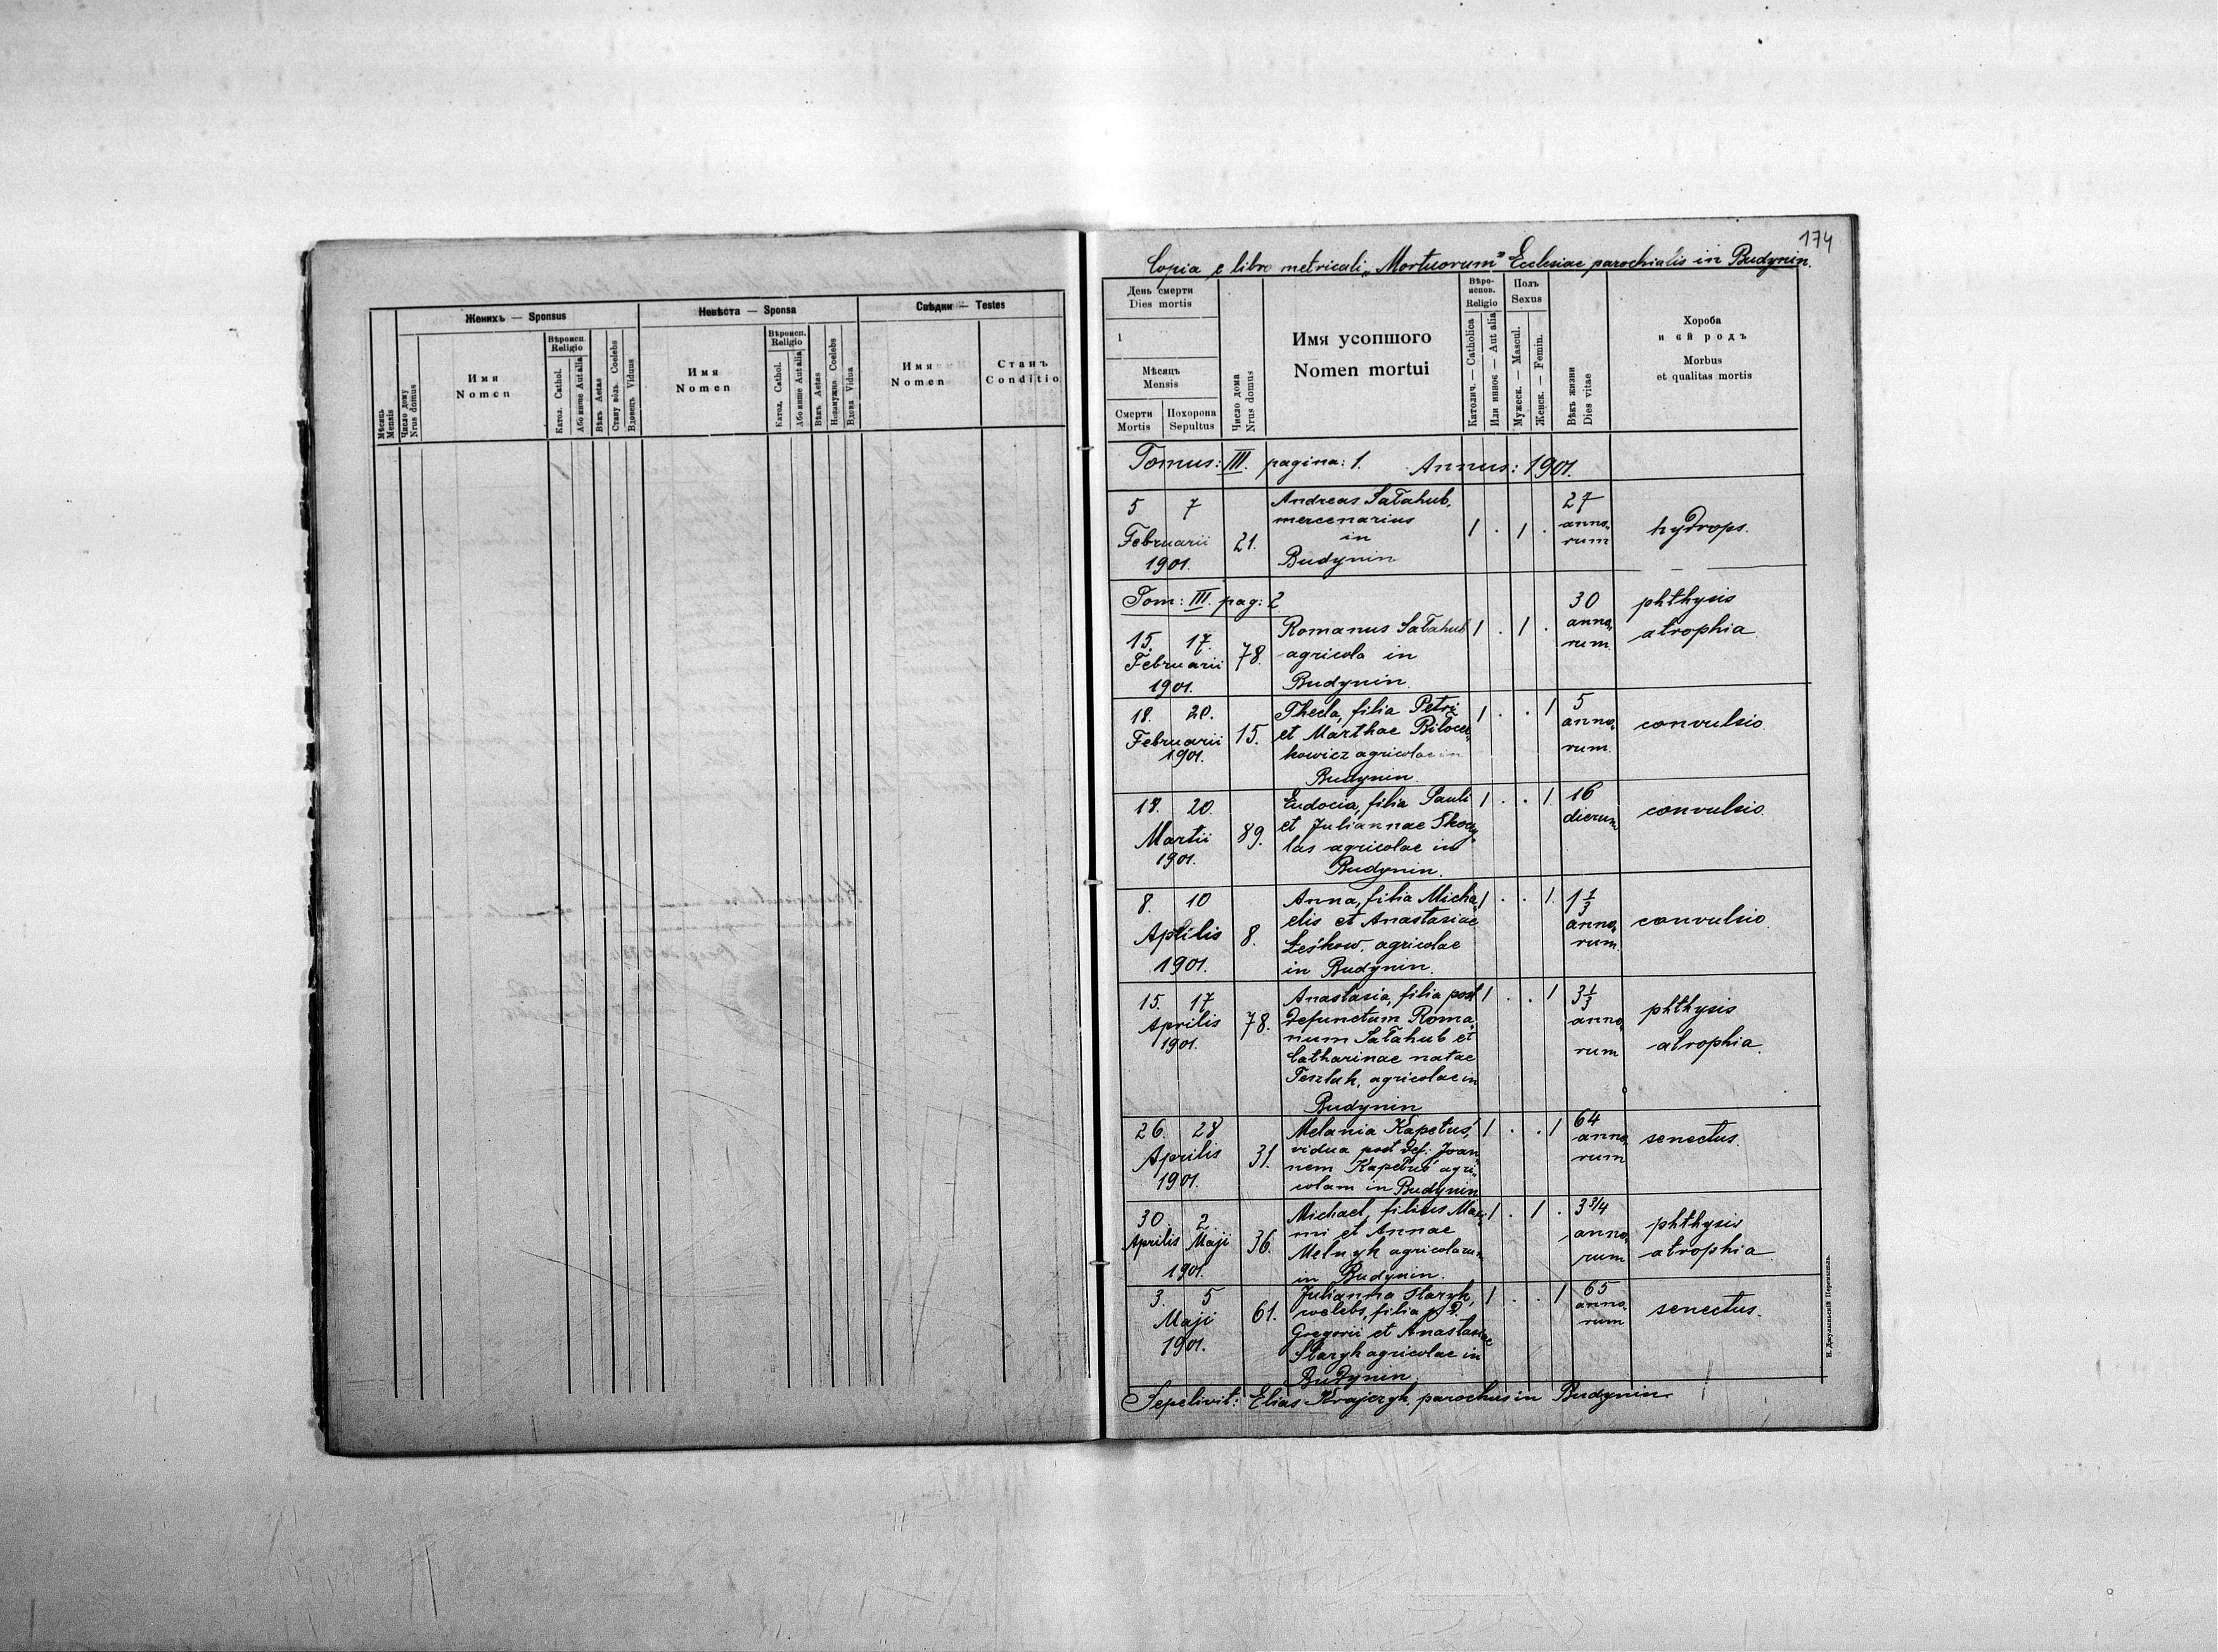 Женихъ — Sponsus
Невѣста — Sponsa
Свѣдки — Testes
Мѣсяць
Mensis
Число дому
Nrus domus
Имя
Nomen
Вѣроисп.
Religio
Катол. Cathol.
Або инше Aut alia
Вѣкъ Aetas
Стану вôльн. Coelebs
Вдовець Viduus
Имя
Nomen
Вѣроисп.
Religio
Катол. Cathol.
Або инше Aut alia
Вѣкъ Aetas
Незамужна Coelebs
Вдова Vidua
Имя
Nomen
Станъ
Conditio
174
Copia e libro metricali „Mortuorum” Ecclesiae parochialis in Budynin.
День смерти
Dies mortis
1
Мѣсяць
Mensis
Смерти
Mortis
Похорона
Sepultus
Число дома
Nrus domus
Имя усопшого
Nomen mortui
Вѣро-
испов.
Religio
Католич. — Catholica
Или инноє — Aut alia
Полъ
Sexus
Мужеск. — Mascul.
Женск. — Femin.
Вѣкъ жизни
Dies vitae
Хороба
и єй родъ
Morbus
et qualitas mortis
Tomus: III. pagina: 1. Annus: 1901.
5 7
Februarii
1901.
21.
Andreas Sałahub,
mercenarius
in
Budynin
1 . 1 .
27
anno„
rum
hydrops.
Tom: III. pag: 2.
15. 17.
Februarii
1901.
78.
Romanus Sałahub
agricola in
Budynin.
1 . 1 .
30
anno„
rum.
phthysis
atrophia.
18. 20.
Februarii
1901.
15.
Thecla, filia Petri
et Marthae Biłocer„
kowicz agricolae in
Budynin.
1 . . 1
5
anno„
rum.
convulsio.
18. 20.
Martii
1901.
89.
Eudocia, filia Pauli
et Juliannae Skocy„
las agricolae in
Budynin.
1 . . 1
16
dierum
convulsio.
8. 10
Aprilis
1901.
8.
Anna, filia Micha„
elis et Anastasiae
Łeśkow, agricolae
in Budynin.
1 . . 1.
1 1/3
anno„
rum.
convulsio.
15. 17
Aprilis
1901.
78.
Anastasia, filia post
defunctum Roma„
num Sałahub et
Catharinae natae
Teszluk, agricolae in
Budynin
1 . . 1
3 1/3
anno„
rum
phthysis
atrophia.
26. 28
Aprilis
1901.
31.
Melania Kapetuś,
vidua post def: Joan„
nem Kapetuś agri„
colam in Budynin
1 . . 1
64
anno„
rum
senectus.
30. 2.
Aprilis Maji
1901.
36.
Michael, filius Maxi„
mi et Annae
Melnyk agricolarum
in Budynin.
1 . 1 .
3 3/4
anno„
rum
phthysis
atrophia
3. 5
Maji
1901.
61.
Julianna Staryk,
coelebs, filia p. D.
Gregorii et Anastasiae
Staryk agricolae in
Budynin.
1 . . 1
65
anno„
rum
senectus.
Sepelivit: Elias Krajczyk, parochus in Budynin.
Н. Джулыньскій Перемышль.